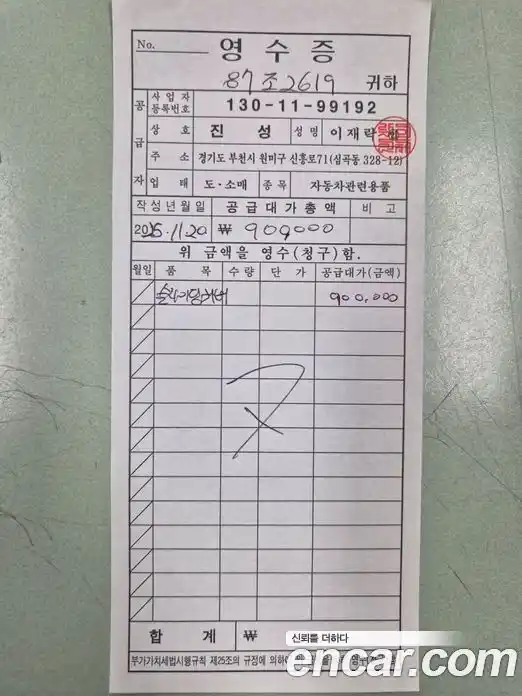 No.
영 수 증
87조2619 귀하
공급자
사업자등록번호 130-11-99192
상 호 진 성 성 명 이재락
주 소 경기도 부천시 원미구 신흥로71(심곡동 328-12)
업 태 도·소매 종 목 자동차관련용품
작성년월일 공급대가총액 비 고
2025.11.20 ₩ 900000
위 금액을 영수(청구)함.
월일 품 목 수량 단 가 공급대가(금액)
슬라이딩커버 900,000
합 계 ₩
부가가치세법시행규칙 제25조의 규정에 의하
신뢰를 더하다
encar.com